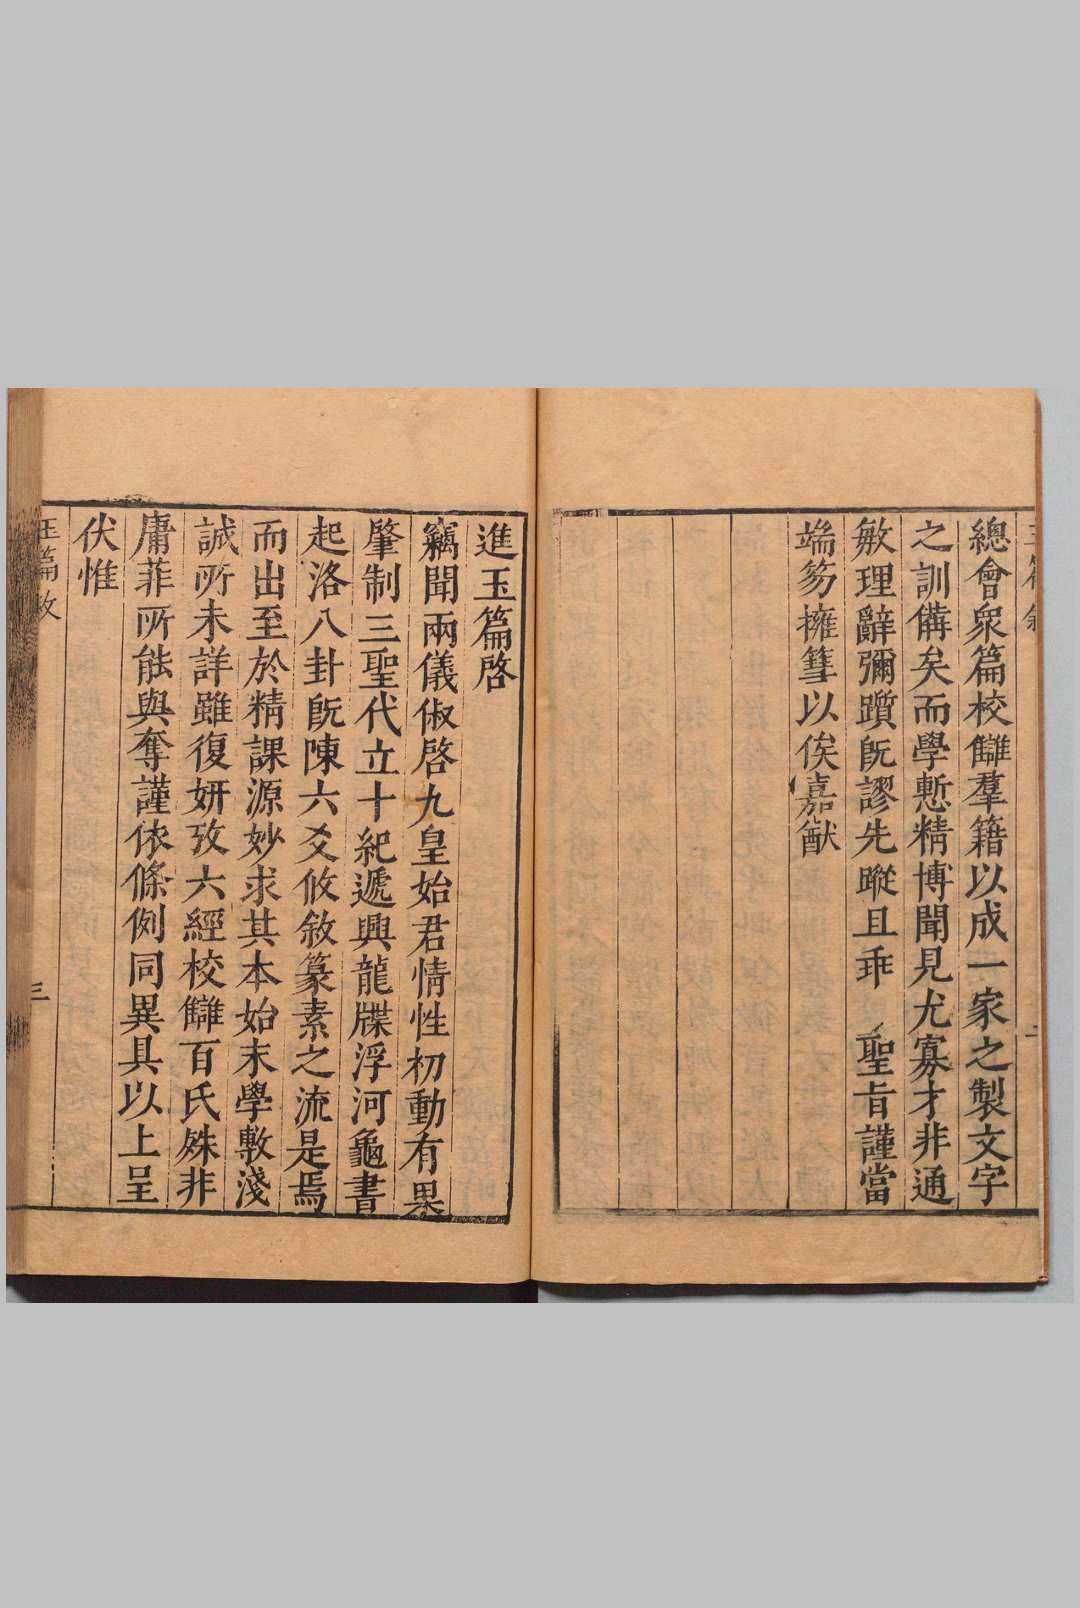 總會衆篇校讎羣籍以成一家之製文字
之訓備矣而學慙精博聞見尤寡才非通
敏理辭彌躓旣謬先蹤且乖　聖旨謹當
端笏擁篲以俟嘉猷
進玉篇啓
竊聞兩儀俶啓九皇始君情性初動有畢
肇制三聖代立十紀遞興龍牒浮河龜書
起洛八卦旣陳六爻攸敘篆素之流是焉
而出至於精課源妙求其本始末學敷淺
誠所未詳雖復姸攷六經校讎百氏殊非
庸菲所能與奪謹依條例同異具以上呈
伏惟
三